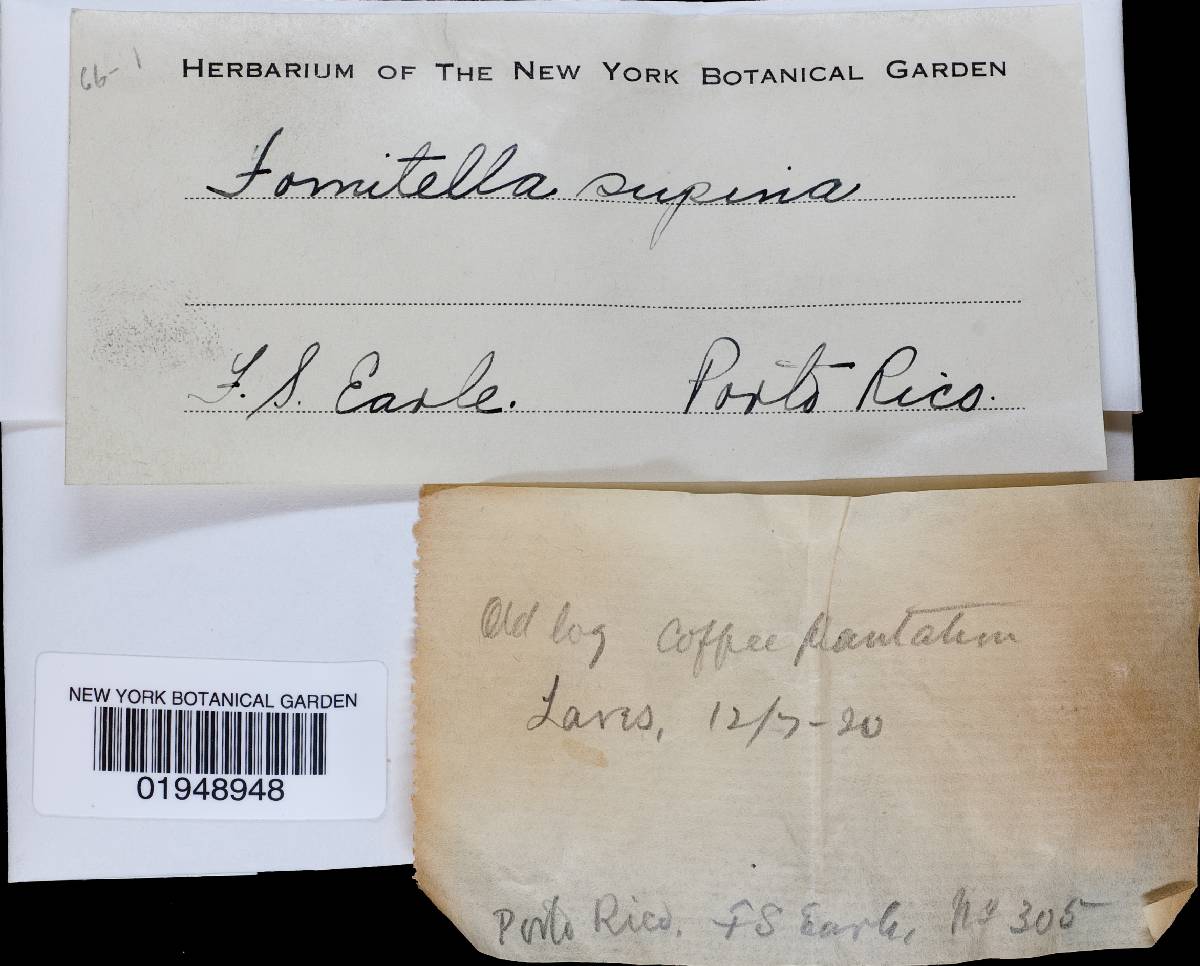 66-1
HERBARIUM OF THE NEW YORK BOTANICAL GARDEN
Fomitella supina
F. S. Earle. Porto Rico.
Old log Coffee plantation
Lares, 12/7-20
Porto Rico. FS Earle, No 305
NEW YORK BOTANICAL GARDEN
01948948